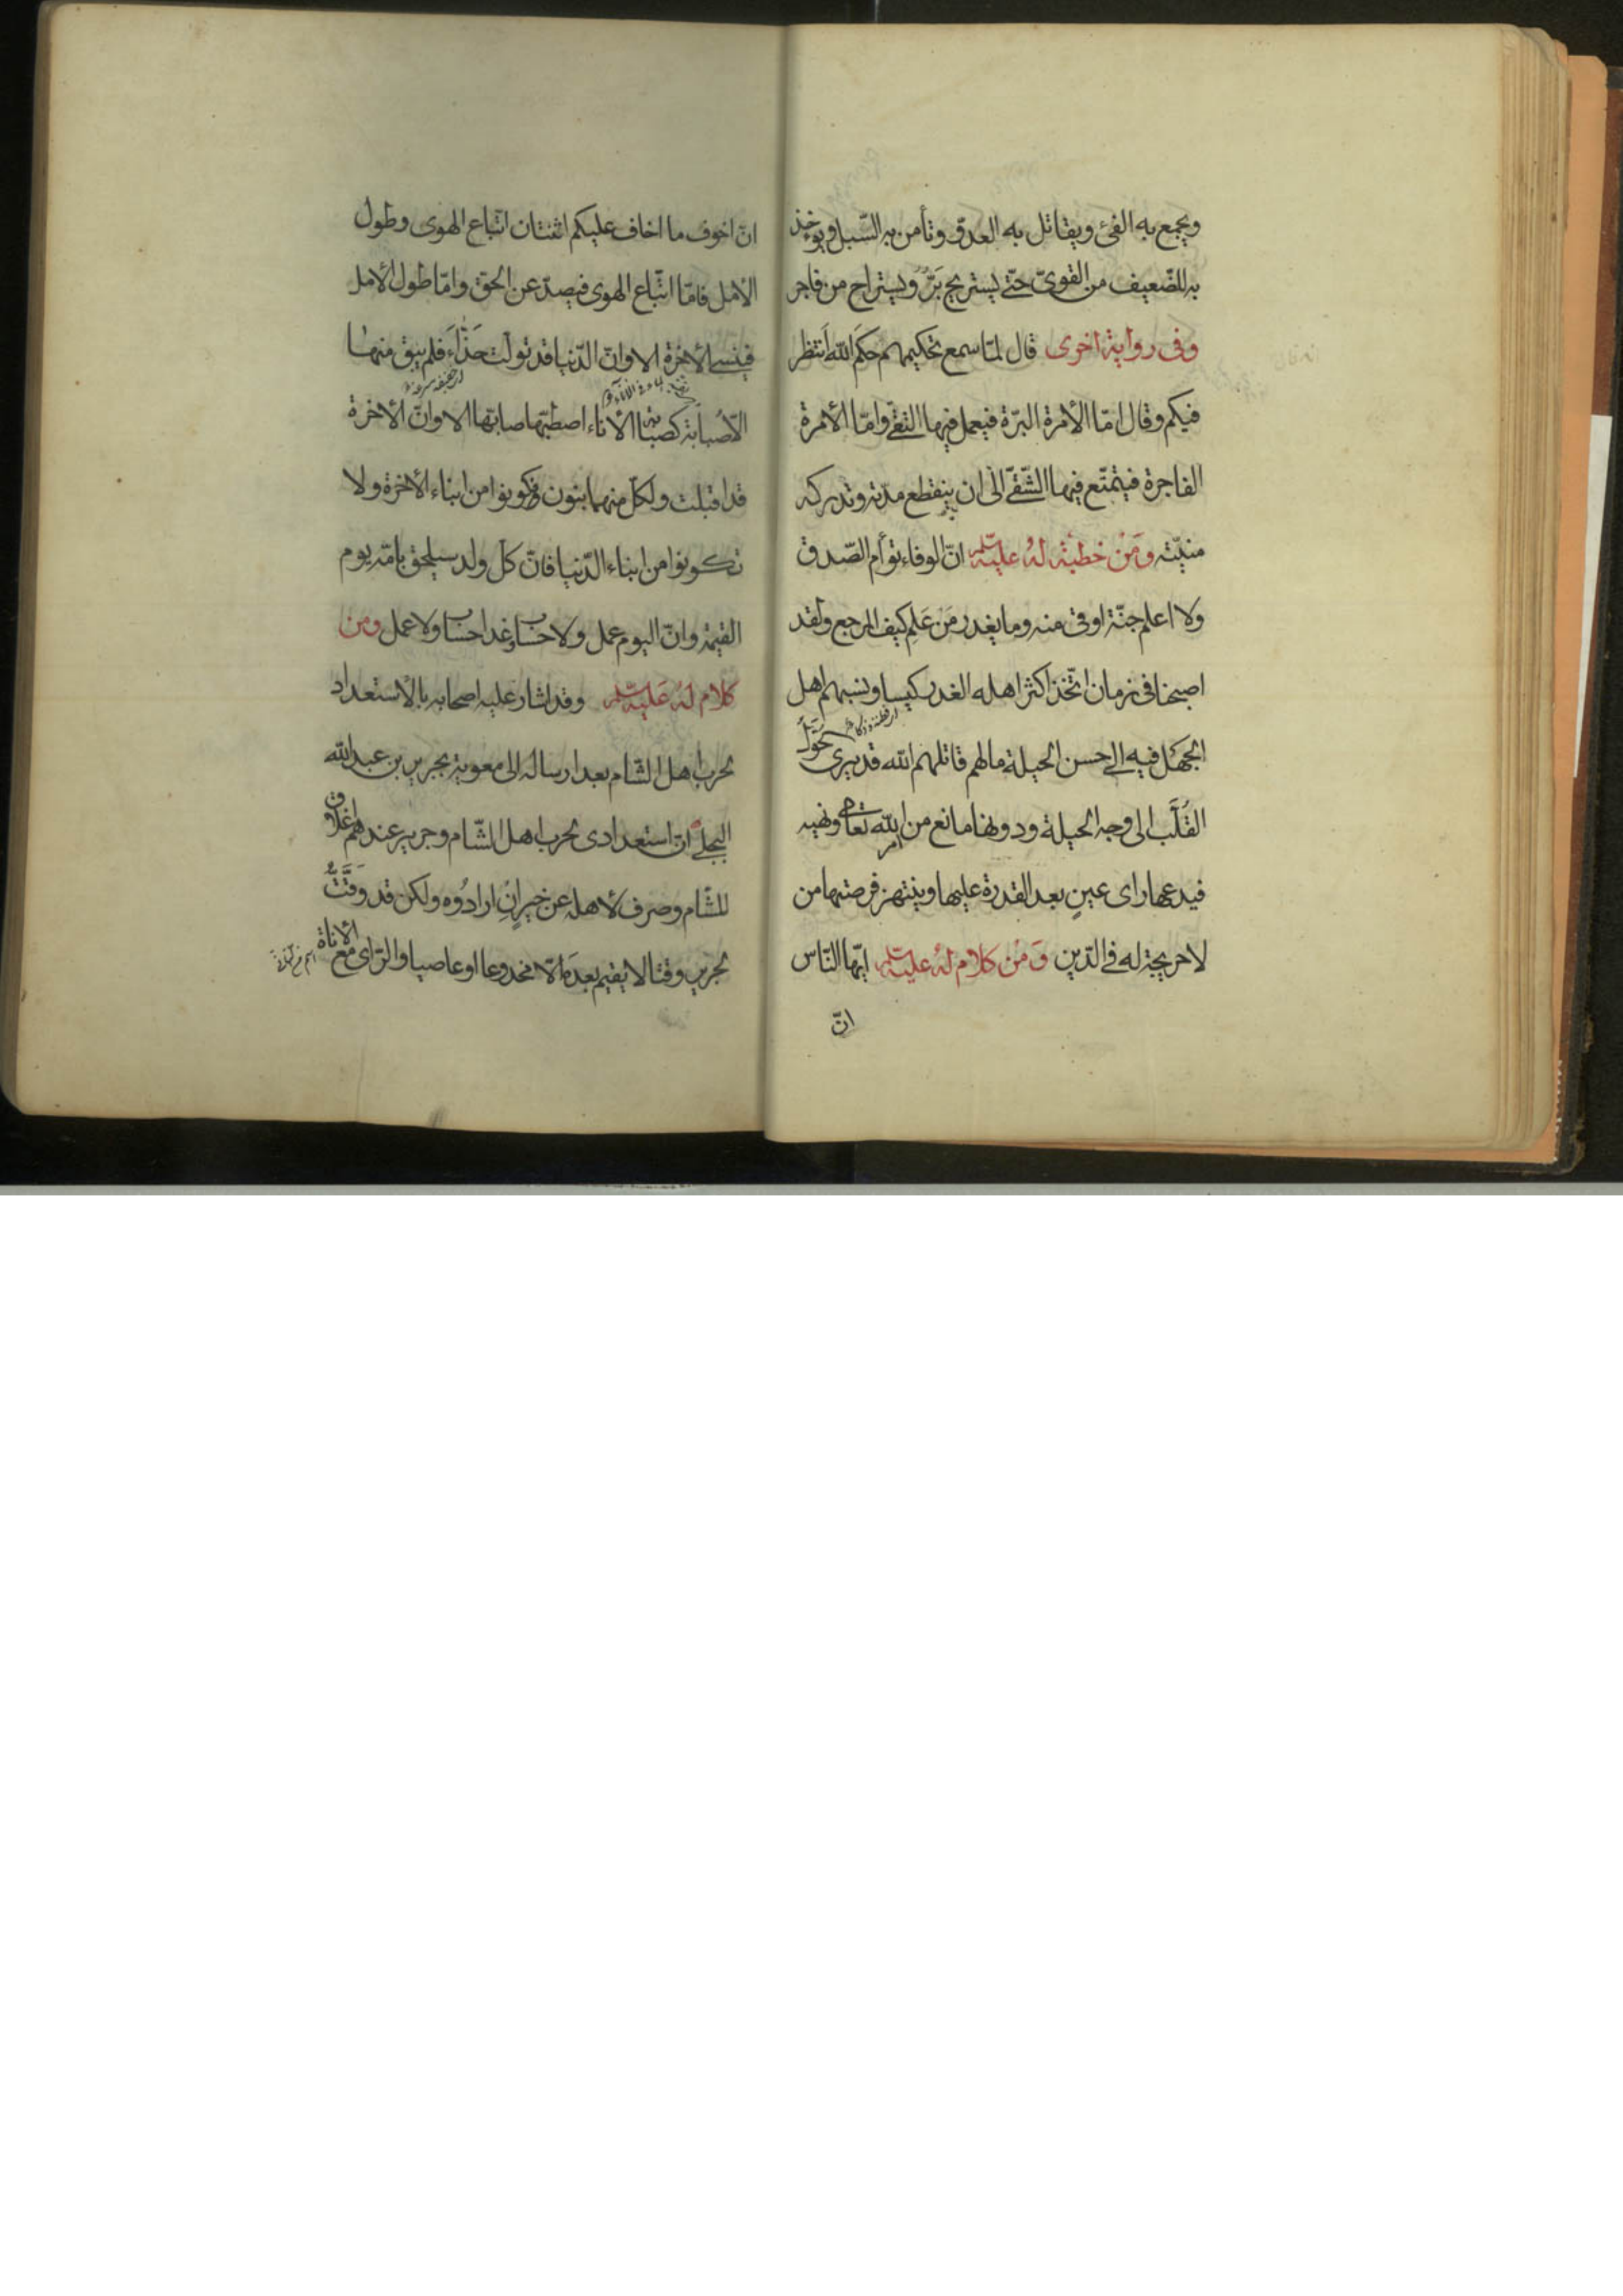 ويجمع به الفئ ويقاتل به العدوّ وتأمن به السّبل ويؤخذ
به للضّعيف من القوىّ حتّى يستريح بَرٌّ ويستراح من فاجر
وفى رواية اخرى قال لمّا سمع تحكيمهم حكمَ الله اَنتظر
فيكم وقال امّا الأمرة البرّة فيعمل فيها التقىّ وامّا الأمرة
الفاجرة فيتمتّع فيها الشّقىّ الى ان ينقطع مدّته وتدركه
منيّته ومَنْ خطبَة لهُ عليه السّلم انّ الوفاء توأم الصّدق
ولا اعلم جنّة اوقى منه وما يغدر مَن عَلِم كيف المرجع ولقد
اصبحنا فى زمان اتّخذ اكثر اهله الغدر كيسا ونسبهم اهل
الجهَل فيه الى حسن الحيلة مالهم قاتلهم الله قد يرى الحُوَّلُ
القُلَّب الى وجه الحيلة ودونها مانع من امر الله تعالى ونهيه
فيدعها راى عينٍ بعد القدرة عليها وينتهز فرصتها من
لا حريجة له فى الدّين وَمنْ كلام لهُ عليه السّلم ايّها النّاس
انّ
انّ اخوف ما اخاف عليكم اثنتان اتّباع الهوى وطول
الأمل فامّا اتّباع الهوى فيصدّ عن الحق وامّا طول الأمل
فينسى الأخرة الا وانّ الدّنيا قد تولّت حَذّاءَ فلم يبق منها
الّا صُبابة كصبابة الأناء اصطبّها صابّها الا وانّ الأخرة
قد اقبلت ولكلّ منهما بنون فكونوا من ابناء الأخرة ولا
تكونوا من ابناء الدّنيا فانّ كلّ ولد سيلحق بامّه يوم
القيمة وانّ اليوم عمل ولا حساب وغدا حساب ولا عمل ومن
كلام لهُ عَليه السّلم وقد اشار عليه اصحابه بالأستعداد
لحرب اهل الشّام بعد ارساله الى معوية بجرير بن عبد الله
البجلىّ انّ استعدادى لحرب اهل الشّام وجرير عندهم اغلاق
للشّام وصرف لأهله عن خيرٍ اِنْ ارادُوه ولكن قد وَقَّتُّ
لجرير وقتا لا يقيم بعدَه الّا مخدوعا او عاصيا والرّاى مع الأناة